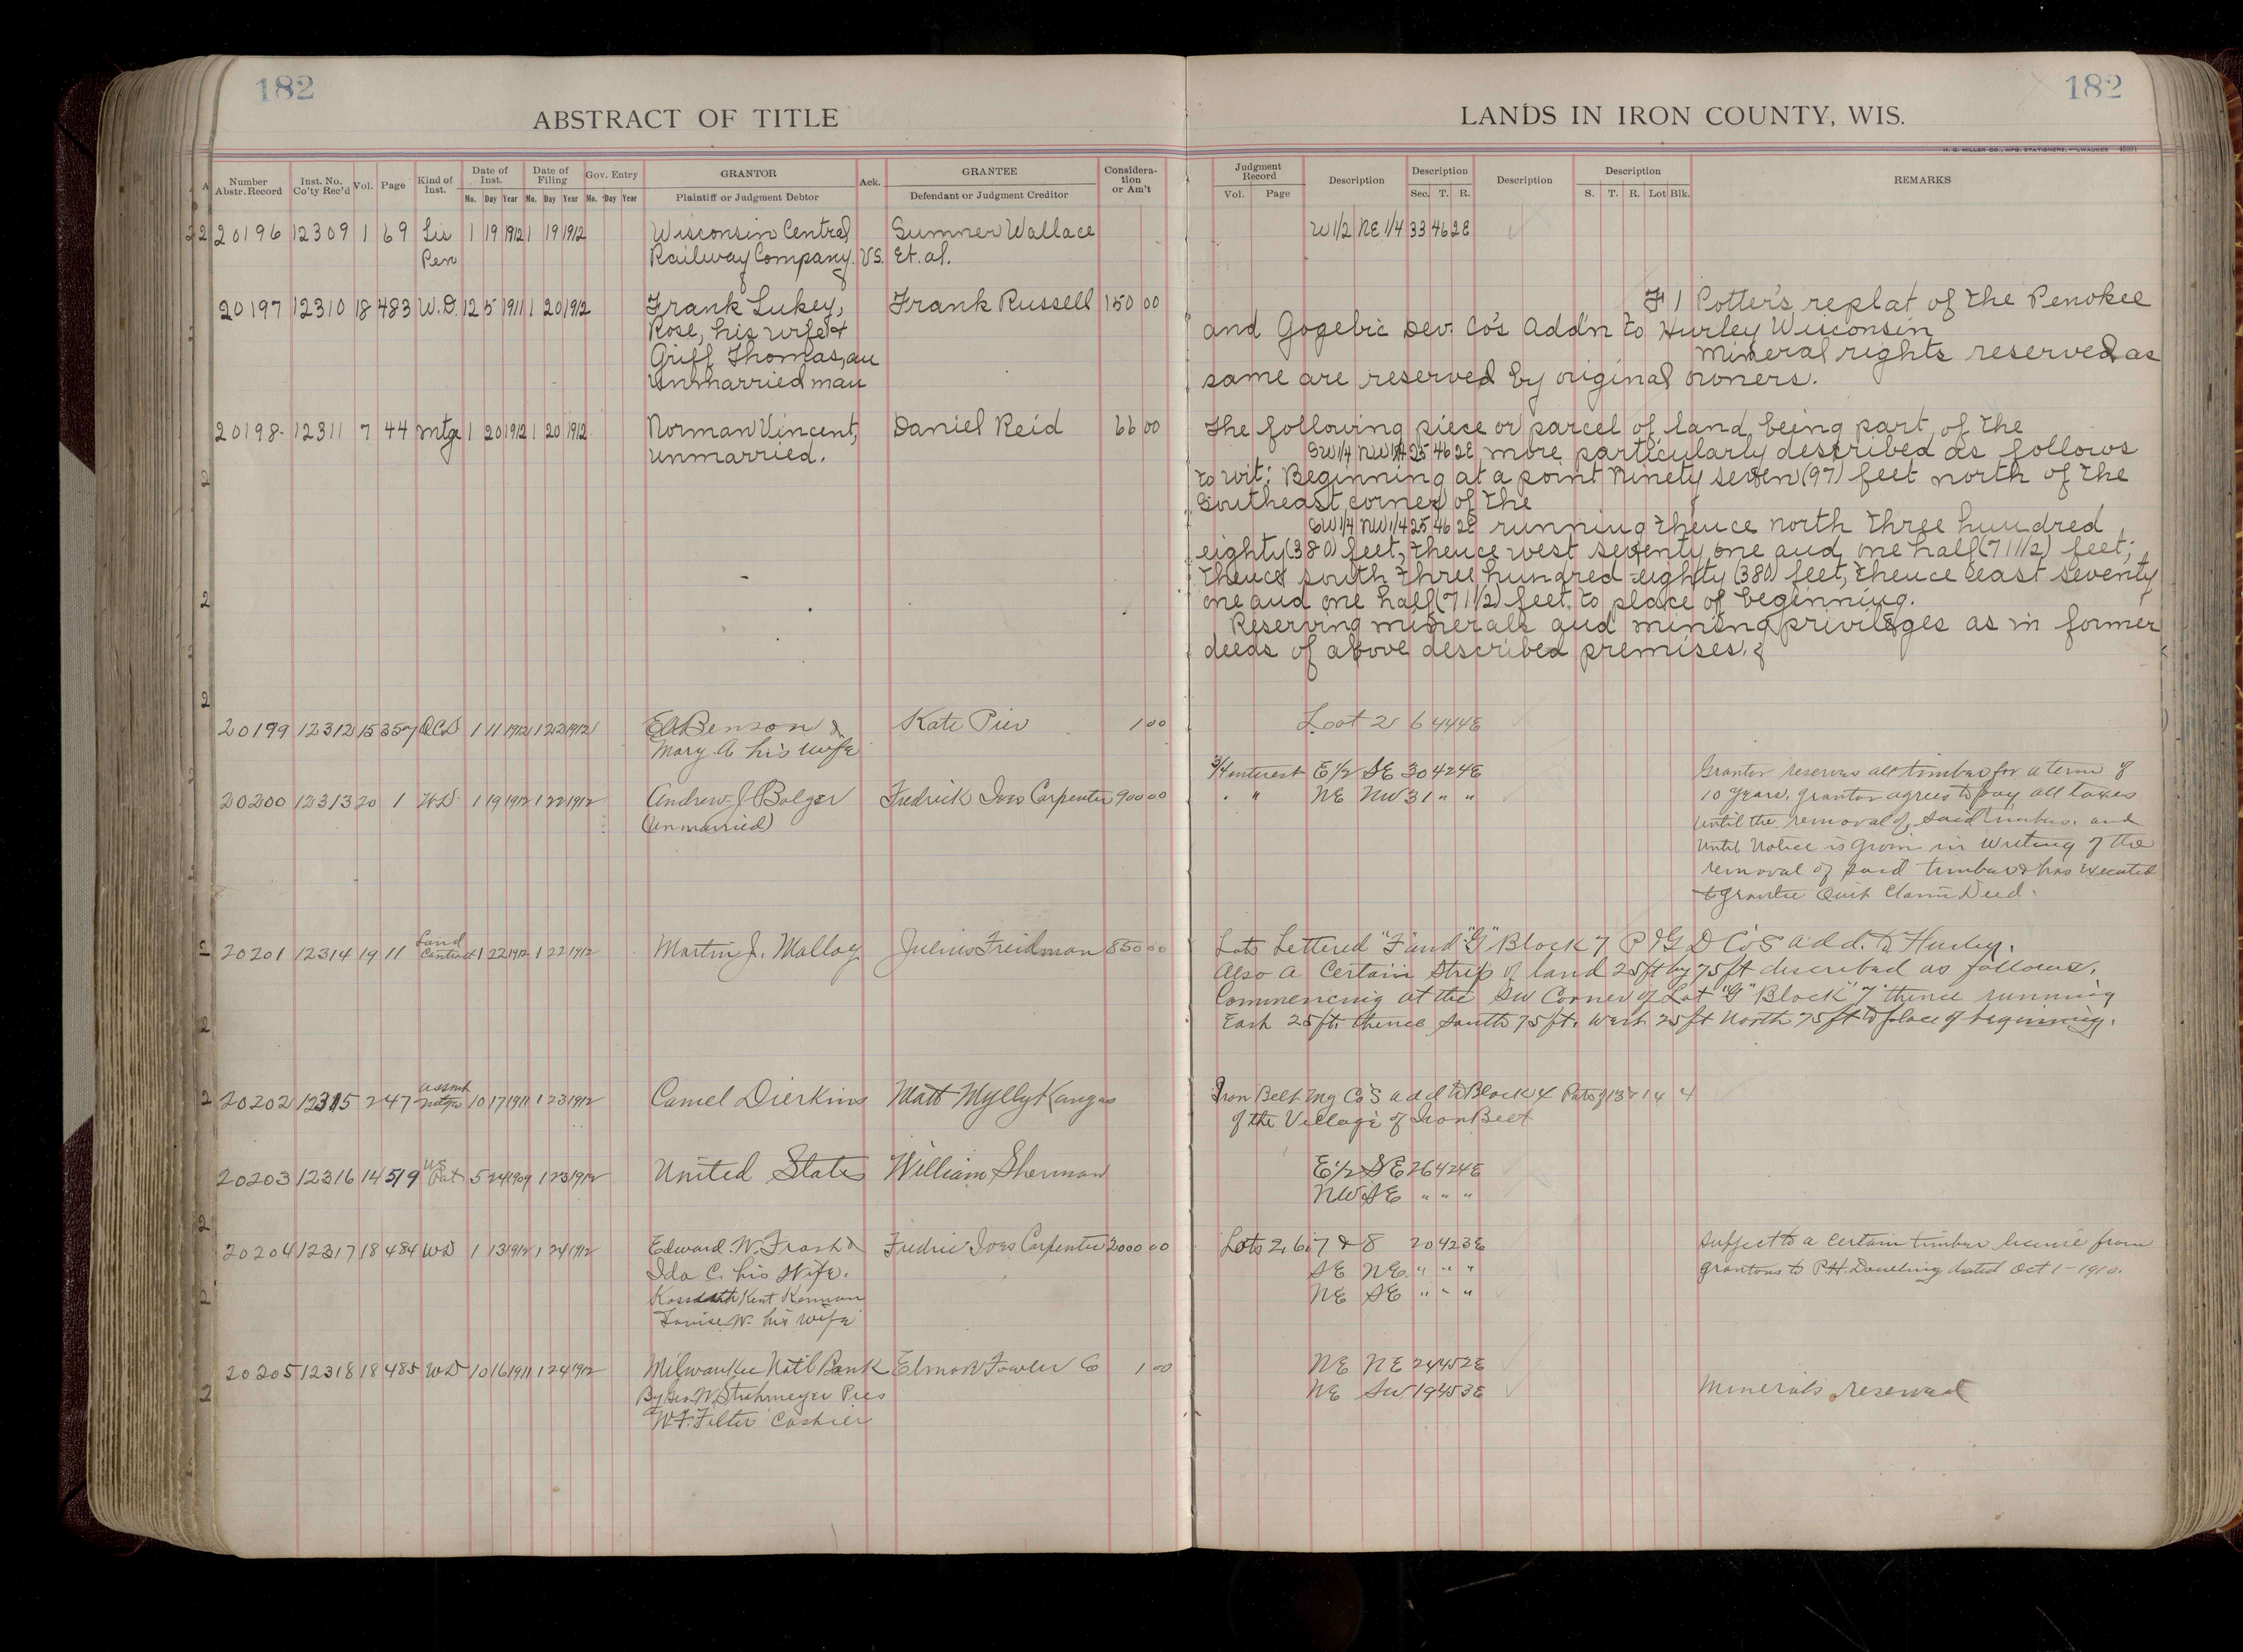 182
182
ABSTRACT OF TITLE
LANDS IN IRON COUNTY, WIS.
H. C. MILLER CO., MFG. STATIONERS, MILWAUKEE
Number Abstr. Record Inst. No. Co'ty Rec'd Vol. Page Kind of Inst. Date of Inst. Mo. Day Year Date of Filing Mo. Day Year Gov. Entry Mo. Day Year GRANTOR Plaintiff or Judgment Debtor Ack. GRANTEE Defendant or Judgment Creditor Considera- tion or Am't
Judgment Record Vol. Page Description Description Sec. T. R. Description Description S. T. R. Lot Blk. REMARKS
20196 12309 1 69 Lis 1 19 1912 1 19 1912 Wisconsin Central Sumner Wallace W 1/2 NE 1/4 33 46 2E
Pen Railway Company. VS. Et. al.
20197 12310 18 483 W.D. 12 5 1911 1 20 1912 Frank Lukey, Frank Russell 150 00 F 1 Potter's replat of the Penokee
Rose, his wife & and Gogebic Dev. Co's Add'n to Hurley Wisconsin
Griff Thomas, an Mineral rights reserved as
unmarried man same are reserved by original owners.
20198 12311 7 44 Mtge 1 20 1912 1 20 1912 Norman Vincent, Daniel Reid 66 00 The following piece or parcel of land being part of the
unmarried. SW 1/4 NW 1/4 25 46 2E more particularly described as follows
to wit: Beginning at a point ninety seven (97) feet north of the
Southeast corner of the
SW 1/4 NW 1/4 25 46 2E running thence north three hundred
eighty (380) feet, thence west seventy one and one half (71 1/2) feet;
thence south three hundred eighty (380) feet, thence east seventy
one and one half (71 1/2) feet to place of beginning.
Reserving minerals and mining privileges as in former
deeds of above described premises.
20199 12312 15 357 QCD 1 11 1912 1 22 1912 Ed Benson & Kate Pier 1 00 Lot 2 6 44 4E
Mary A his wife
20200 12313 20 1 WD 1 19 1912 1 22 1912 Andrew J Bolger Fredrick Ives Carpenter 900 00 3/4 interest E 1/2 SE 30 42 4E Grantor reserves all timber for a term of
(unmarried) " " NE NW 31 " " 10 years. grantor agrees to pay all taxes
until the removal of said timber. and
until Notice is given in writing of the
removal of said timber & has executed
to grantee Quit Claim Deed.
20201 12314 19 11 Land Contract 1 22 1912 1 22 1912 Martin J. Malloy Julius Freidman 850 00 Lots Lettered "F" and "G" Block 7 P & G D Co's add. to Hurley.
Also a certain strip of land 25 ft by 75 ft described as follows.
Commencing at the SW Corner of Lot "G" Block "7" thence running
East 25 ft. thence South 75 ft. West 25 ft North 75 ft to place of beginning.
20202 12315 2 47 Assmt Mtge 10 17 1911 1 23 1912 Camel Dierkins Matt MyllyKangas Iron Belt Mg Co's add to Block 4 Parts of 13 & 14 4
of the Village of Iron Belt
20203 12316 14 519 US Pat 5 24 1909 1 23 1912 United States William Sherman E 1/2 SE 26 42 4E
NW SE " " "
20204 12317 18 484 WD 1 13 1912 1 24 1912 Edward W. Frost & Fredric Ives Carpenter 2000 00 Lots 2, 6, 7 & 8 20 42 3E Subject to a certain timber license from
Ida C. his Wife. SE NE " " " grantors to P.H. dated Oct 1-1910.
Kent Kennan NE SE " " "
Louise W. his wife
20205 12318 18 485 WD 10 16 1911 1 24 1912 Milwaukee Nat'l Bank Elmore Fowler Co 1 00 NE NE 24 45 2E
By Geo. W. Strohmeyer Pres NE SW 19 45 3E Minerals reserved
W.F. Filter Cashier